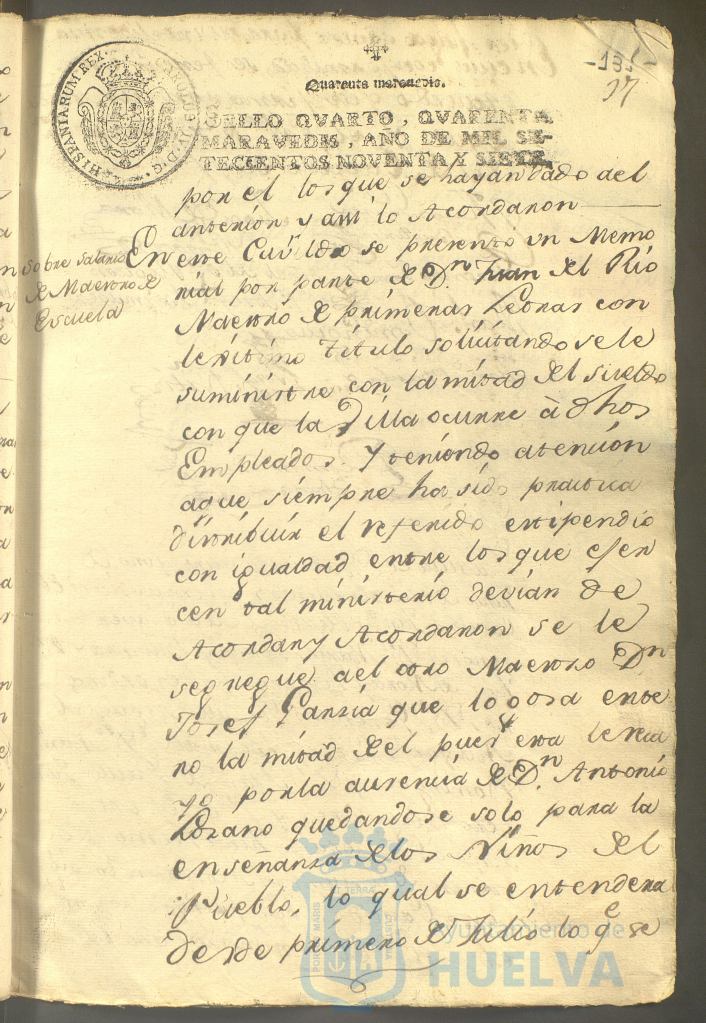 -181-
17
Quarenta maravedis.
HISPANIARUM REX CAROLUS IV D. G.
SELLO QVARTO, QVARENTA
MARAVEDIS, AÑO DE MIL SE-
TECIENTOS NOVENTA Y SIETE.
por el los que se hayan dado ael
anterior y assi lo Acordaron
Sobre salario
de Maestro de
Escuela
En este Cavildo se presento un Memo
rial por parte de Dn. Juan del Rio
Maestro de primeras Letras con
lexitimo Titulo solicitando se le
suministre con la mitad del sueldo
con que la Villa ocurre à dhos
Empleados. Y teniendo atencion
aque siempre ha sido practica
distribuir el referido estipendio
con igualdad entre los que ejer
cen tal ministerio devian de
Acordar y Acordaron se le
segregue ael otro Maestro Dn
Josef Garzia que lo gosa ente
ro la mitad del pues esta
yo por la ausencia de Dn. Antonio
Lozano quedandose solo para la
enseñanza de los Niños del
Pueblo, lo qual se entendera
desde primero de Julio lo qe se
Ayuntamiento de
HUELVA